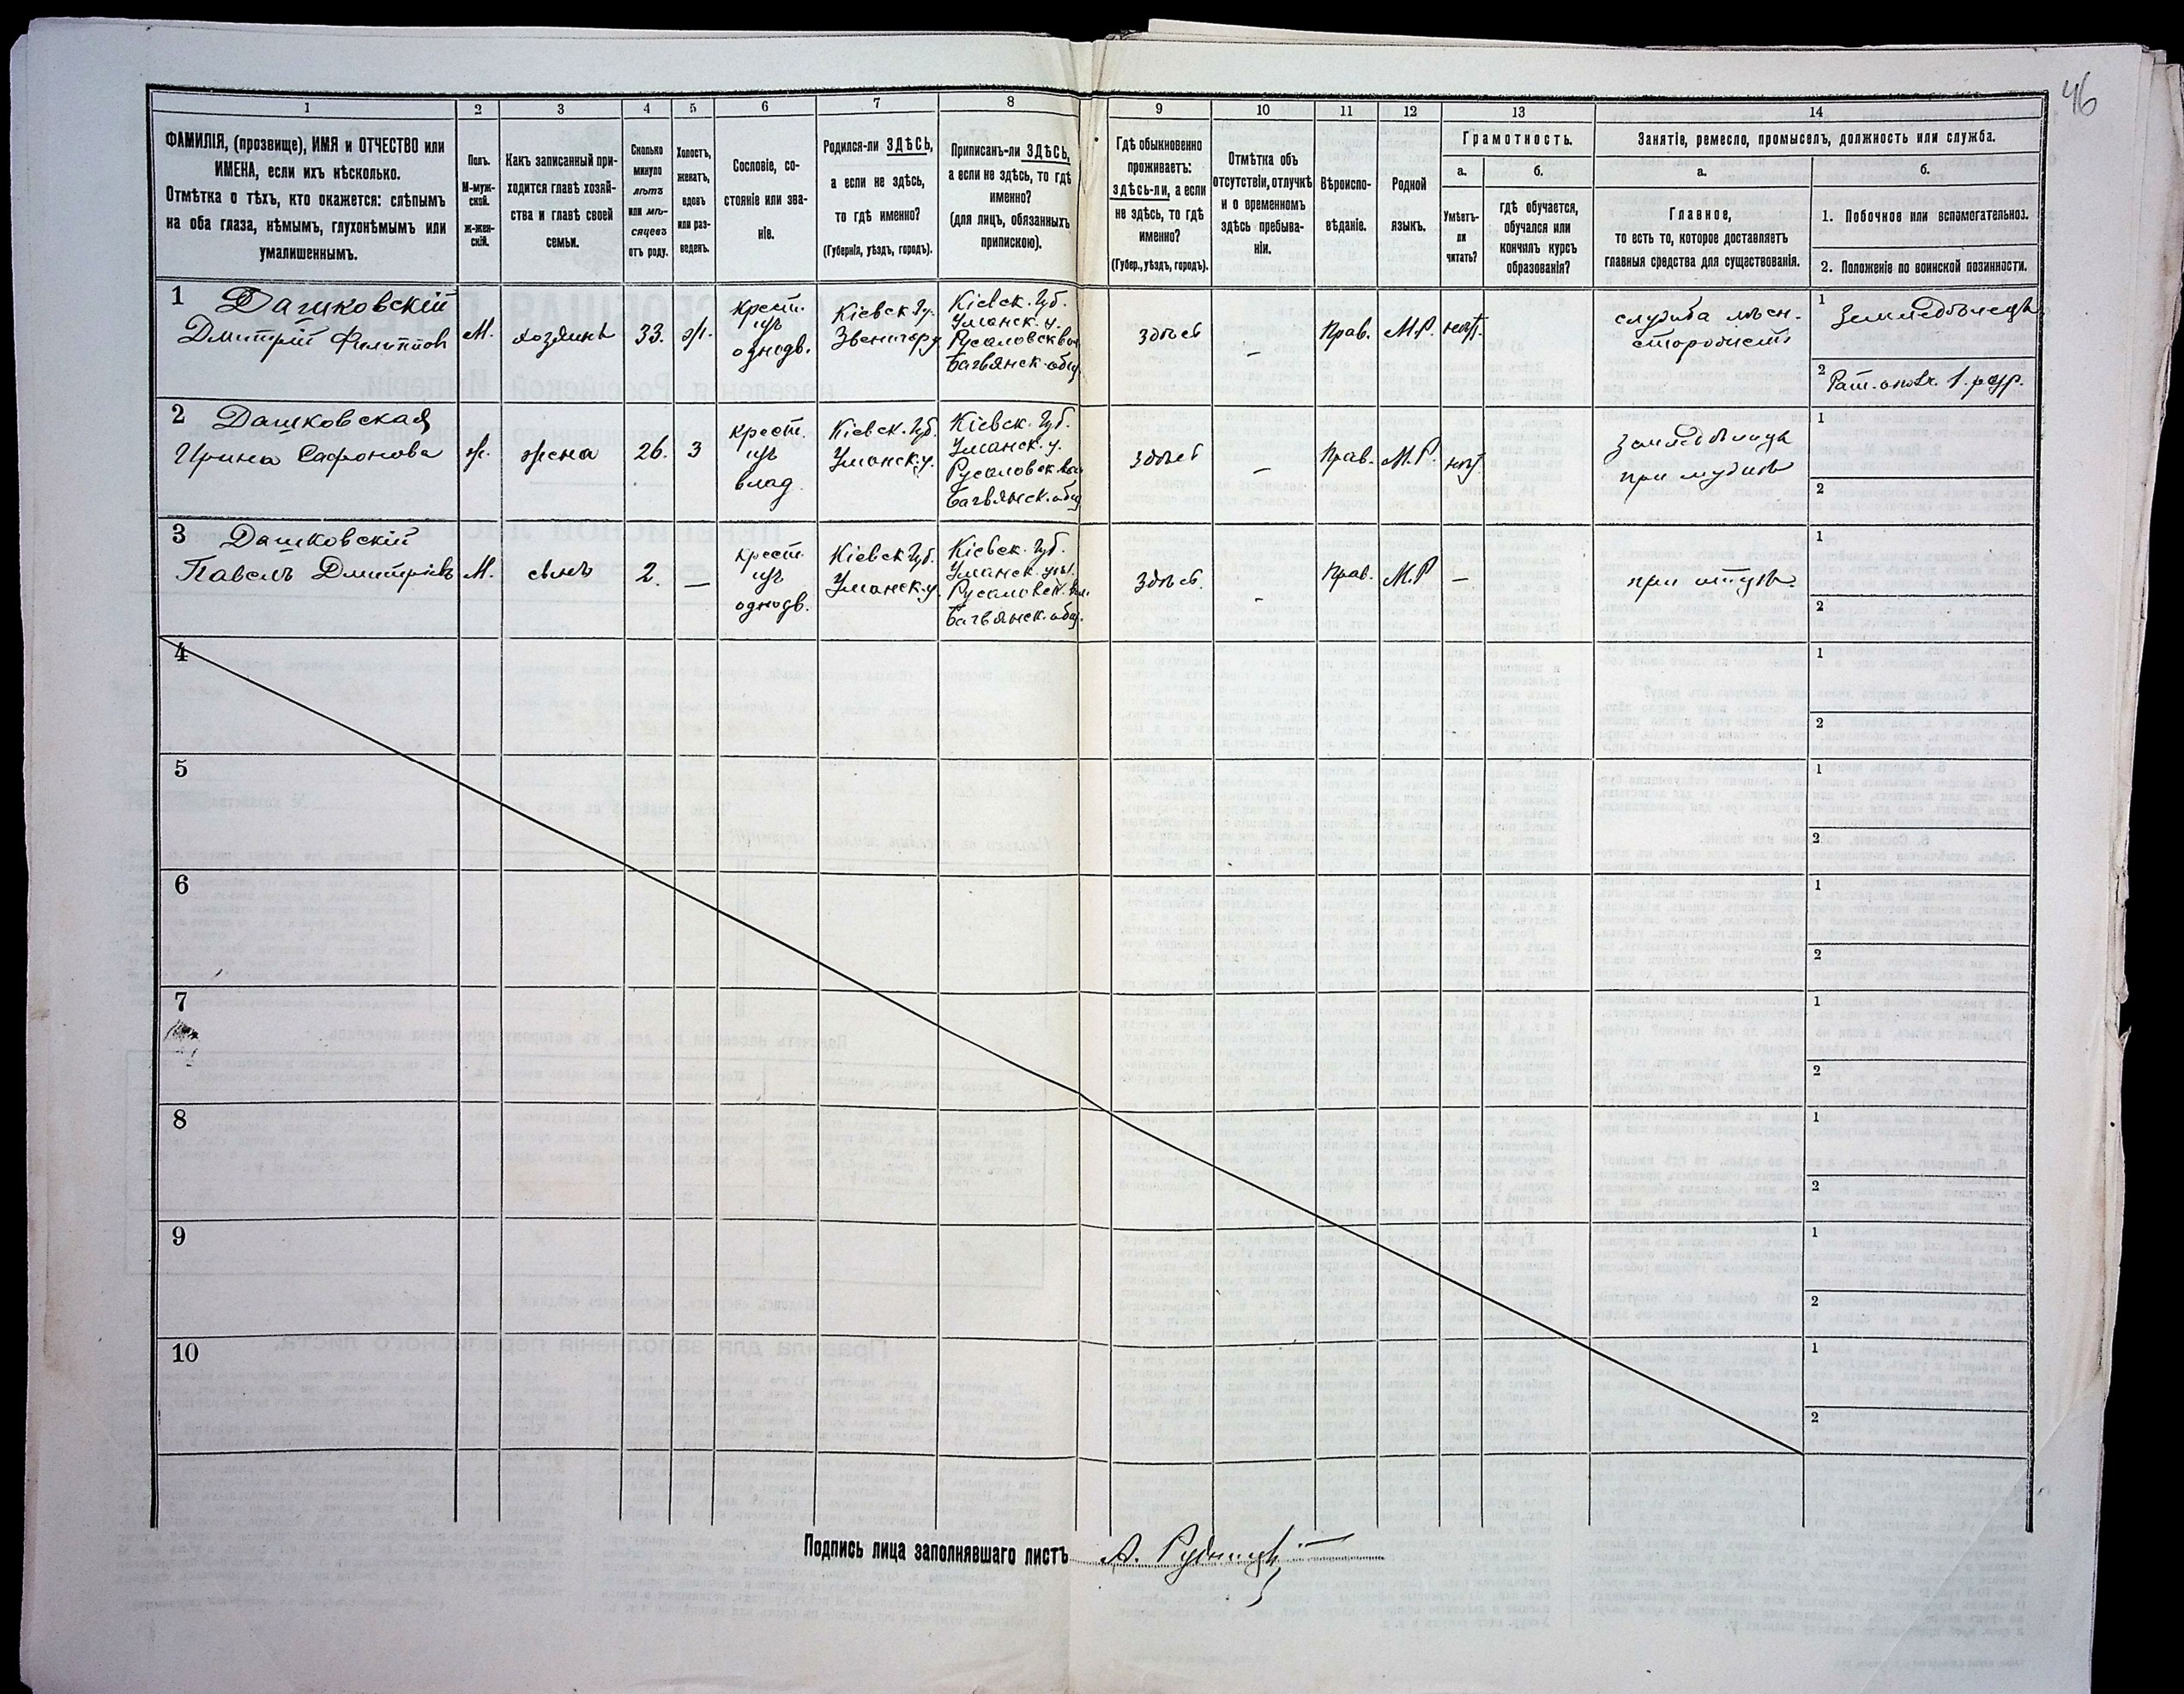 46
1
2
3
4
5
6
7
8
9
10
11
12
13
14
ФАМИЛІЯ, (прозвище), ИМЯ и ОТЧЕСТВО или
ИМЕНА, если ихъ нѣсколько.
Отмѣтка о тѣхъ, кто окажется: слѣпымъ
на оба глаза, нѣмымъ, глухонѣмымъ или
умалишеннымъ.
Полъ.
М-муж-
ской.
Ж-жен-
скій.
Какъ записанный при-
ходится главѣ хозяй-
ства и главѣ своей
семьи.
Сколько
минуло
лѣтъ
или мѣ-
сяцевъ
отъ роду.
Холостъ,
женатъ,
вдовъ
или раз-
веденъ.
Сословіе, со-
стояніе или зва-
ніе.
Родился-ли ЗДѢСЬ,
а если не здѣсь,
то гдѣ именно?
(Губернія, уѣздъ, городъ).
Приписанъ-ли ЗДѢСЬ,
а если не здѣсь, то гдѣ
именно?
(для лицъ, обязанныхъ
припискою).
Гдѣ обыкновенно
проживаетъ:
здѣсь-ли, а если
не здѣсь, то гдѣ
именно?
(Губер., уѣздъ, городъ).
Отмѣтка объ
отсутствіи, отлучкѣ
и о временномъ
здѣсь пребыва-
ніи.
Вѣроиспо-
вѣданіе.
Родной
языкъ.
Грамотность.
а.
б.
Умѣетъ-
ли
читать?
гдѣ обучается,
обучался или
кончилъ курсъ
образованія?
Занятіе, ремесло, промыселъ, должность или служба.
а.
б.
Главное,
то есть то, которое доставляетъ
главныя средства для существованія.
1. Побочное или вспомогательное.
2. Положеніе по воинской повинности.
1
Дашковскій
Дмитрій Филиппов
М.
хозяинъ
33.
ж.
крест.
изъ
однодв.
Кіевск Гу.
Звенигор у
Кіевск. Губ.
Уманск. у.
Русаловск вол
Багвянск. общ
здѣсь
–
Прав.
М.Р.
нѣт.
служба лѣсн.
сторожемъ
1
Земледѣлецъ
2
Рат. опол. 1. разр.
2
Дашковская
Ирина Сафонова
ж.
жена
26.
З
крест.
изъ
влад.
Кіевск. Губ.
Уманск. у.
Кіевск. Губ.
Уманск. у.
Русаловск. вол
Багвянск. общ
здѣсь
–
Прав.
М.Р.
нѣт.
при мужѣ
1
2
3
Дашковскій
Павелъ Дмитріевъ
М.
сынъ
2.
—
крест.
изъ
однодв.
Кіевск Губ.
Уманск. у.
Кіевск. Губ.
Уманск. у.
Русаловск. вол.
Багвянск. общ.
здѣсь.
–
Прав.
М.Р
–
при отцѣ.
1
2
4
1
2
5
1
2
6
1
2
7
1
2
8
1
2
9
1
2
10
1
2
Подпись лица заполнявшаго листъ